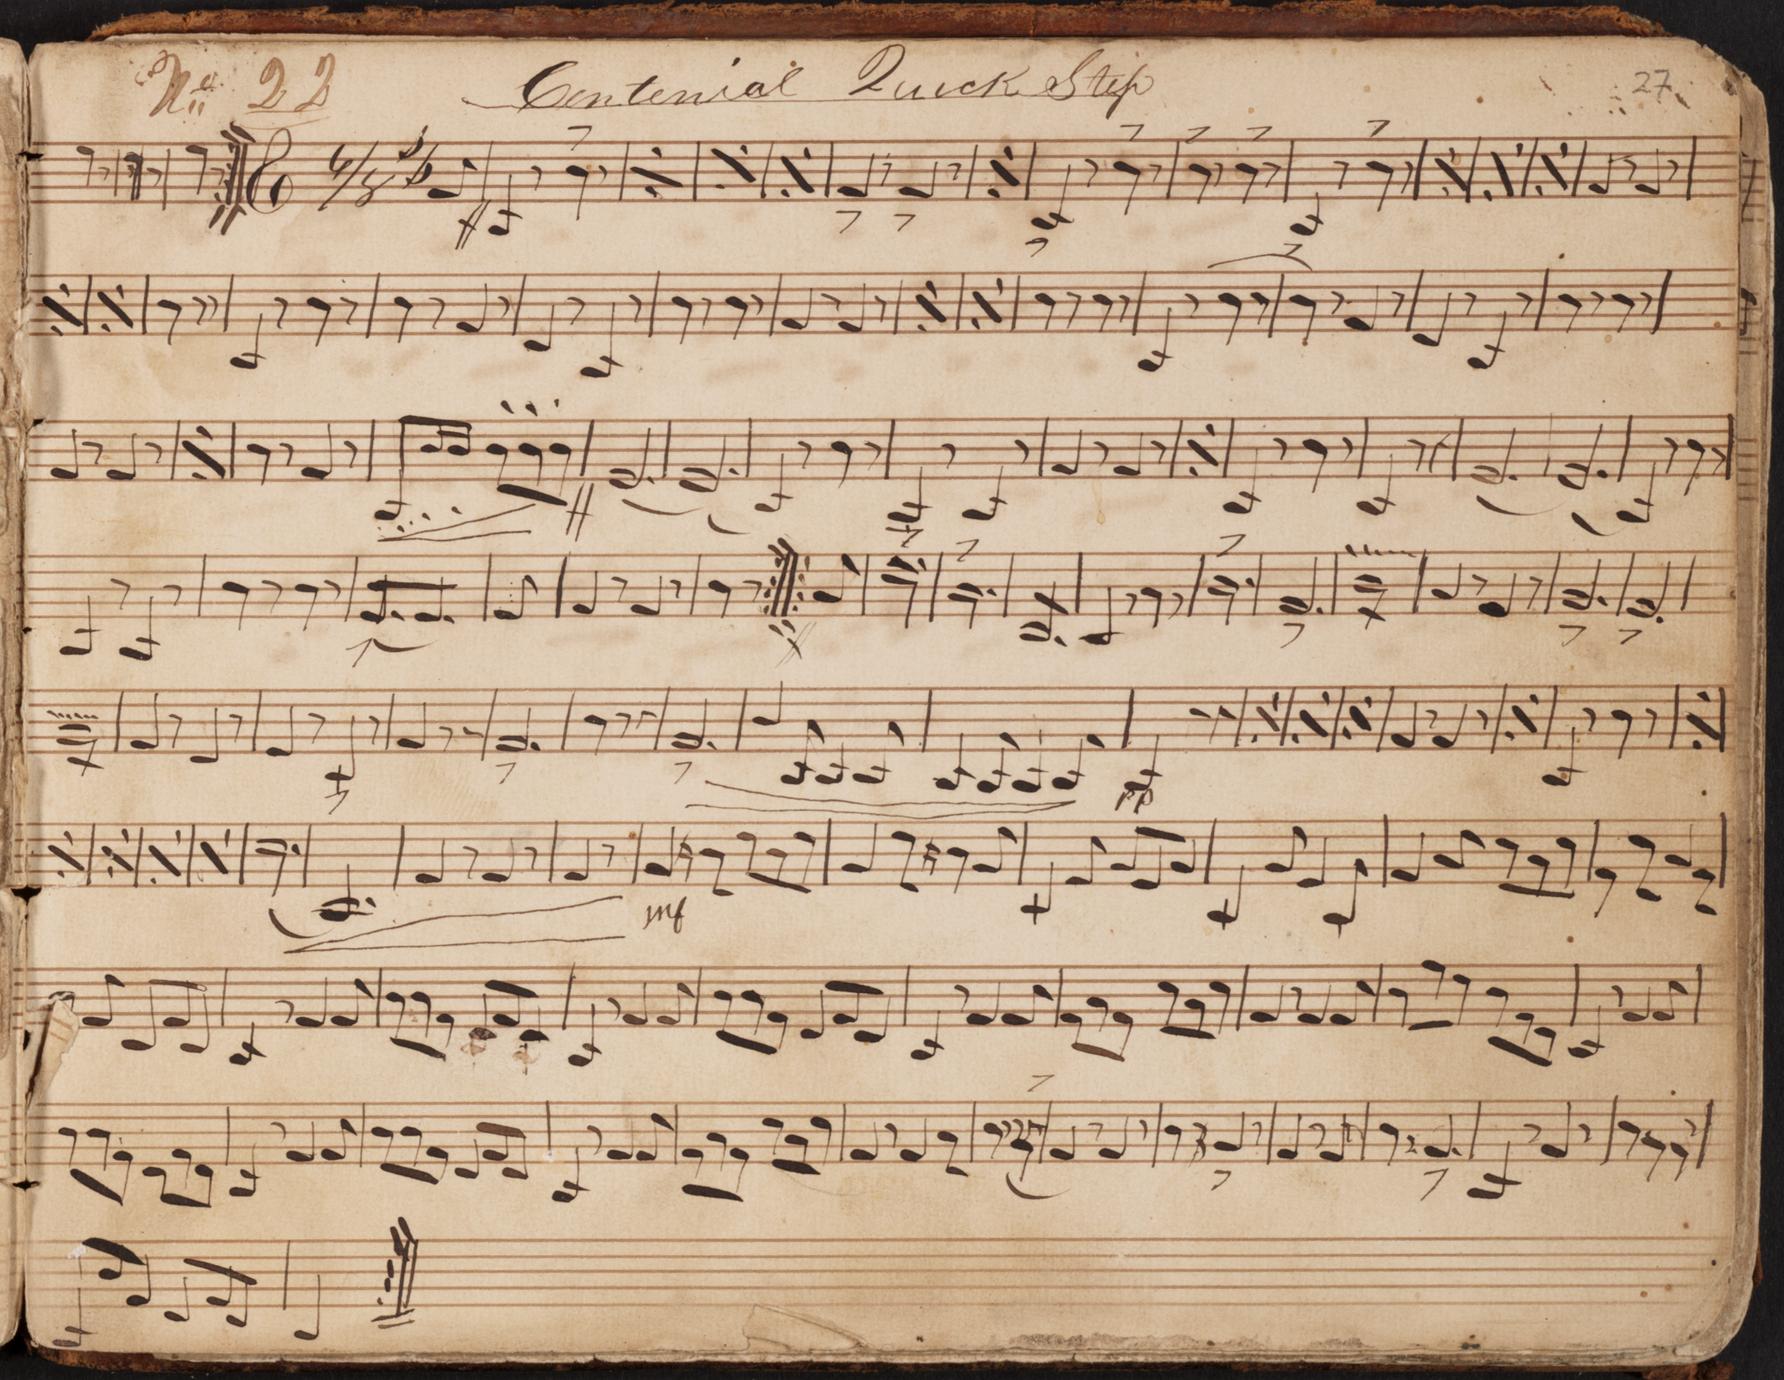 No 22 Centenial Quick Step 27
6/8
pp
mf